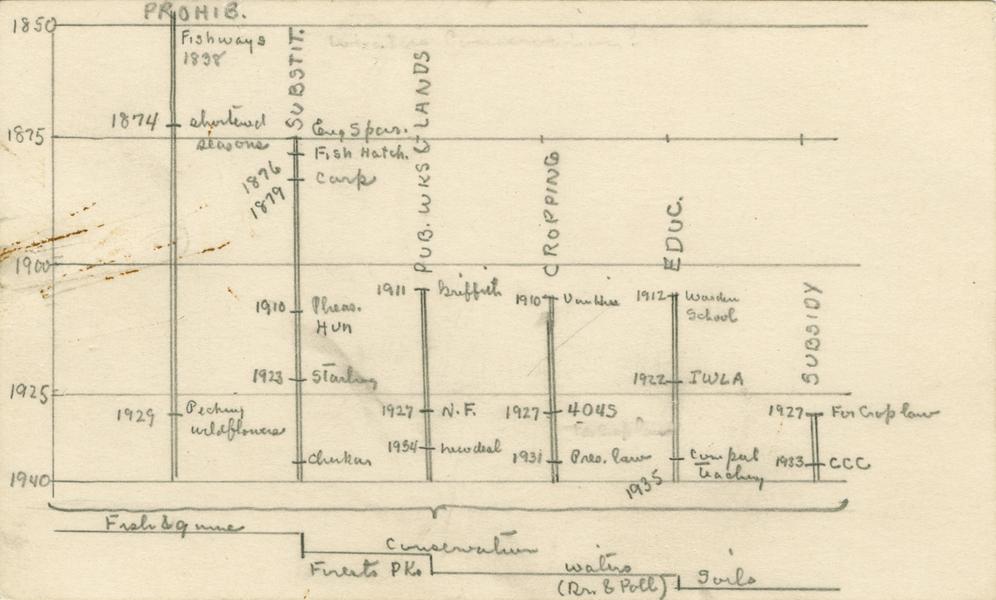 PROHIB.
1850
Fishways
1838
SUBSTIT.
PUB. WKS & LANDS
1874
shortened
seasons
1875
Eng Spar.
Fish Hatch.
1876
Carp
1879
CROPPING
EDUC.
1900
1911 Griffith
1910 Van Hise
1912 Warden
School
SUBSIDY
1910 Pheas.
Hun
1923 Starling
1922 IWLA
1925
1929 Picking
wildflowers
1927 N.F.
1927 404S
1927 For Crop law
1934 New deal
Chukar
1931 Pres. law
1935
Compul
Teaching
1933 CCC
1940
Fish & game
Conservation
Forests PKs
waters
(Dr. & Poll)
Soils